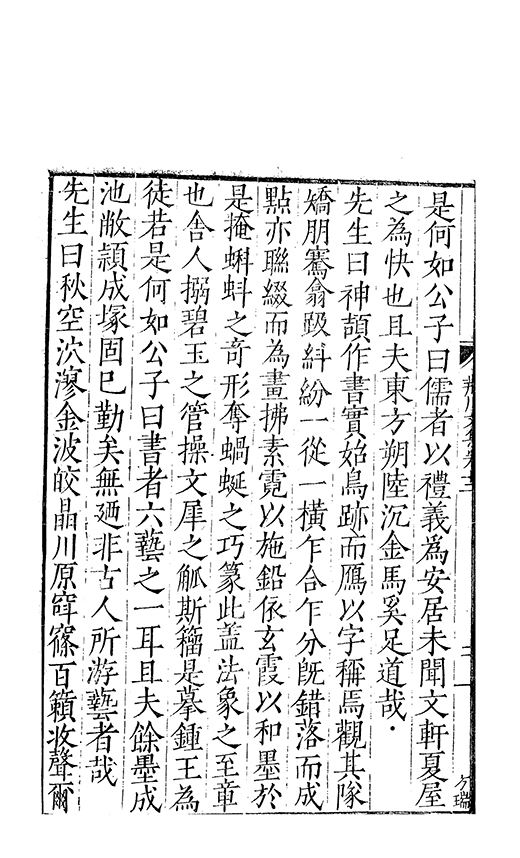 是何如公子曰儒者以禮義爲安居未聞文軒夏屋
之為快也且夫東方朔陸沉金馬奚足道哉
先生曰神頡作書實始鳥跡而鴈以字稱焉觀其隊
矯朋騫翕趿紏紛一從一橫乍合乍分旣錯落而成
點亦聯綴而為畫拂素霓以施鉛依玄霞以和墨於
是掩蝌蚪之奇形奪蝸蜒之巧篆此盖法象之至章
也舍人搦碧玉之管操文犀之觚斯籀是摹鍾王為
徒若是何如公子曰書者六藝之一耳且夫餘墨成
池敝頴成塚固已勤矣無廼非古人所游藝者哉
先生曰秋空泬漻金波皎晶川原窂窱百籟收聲爾